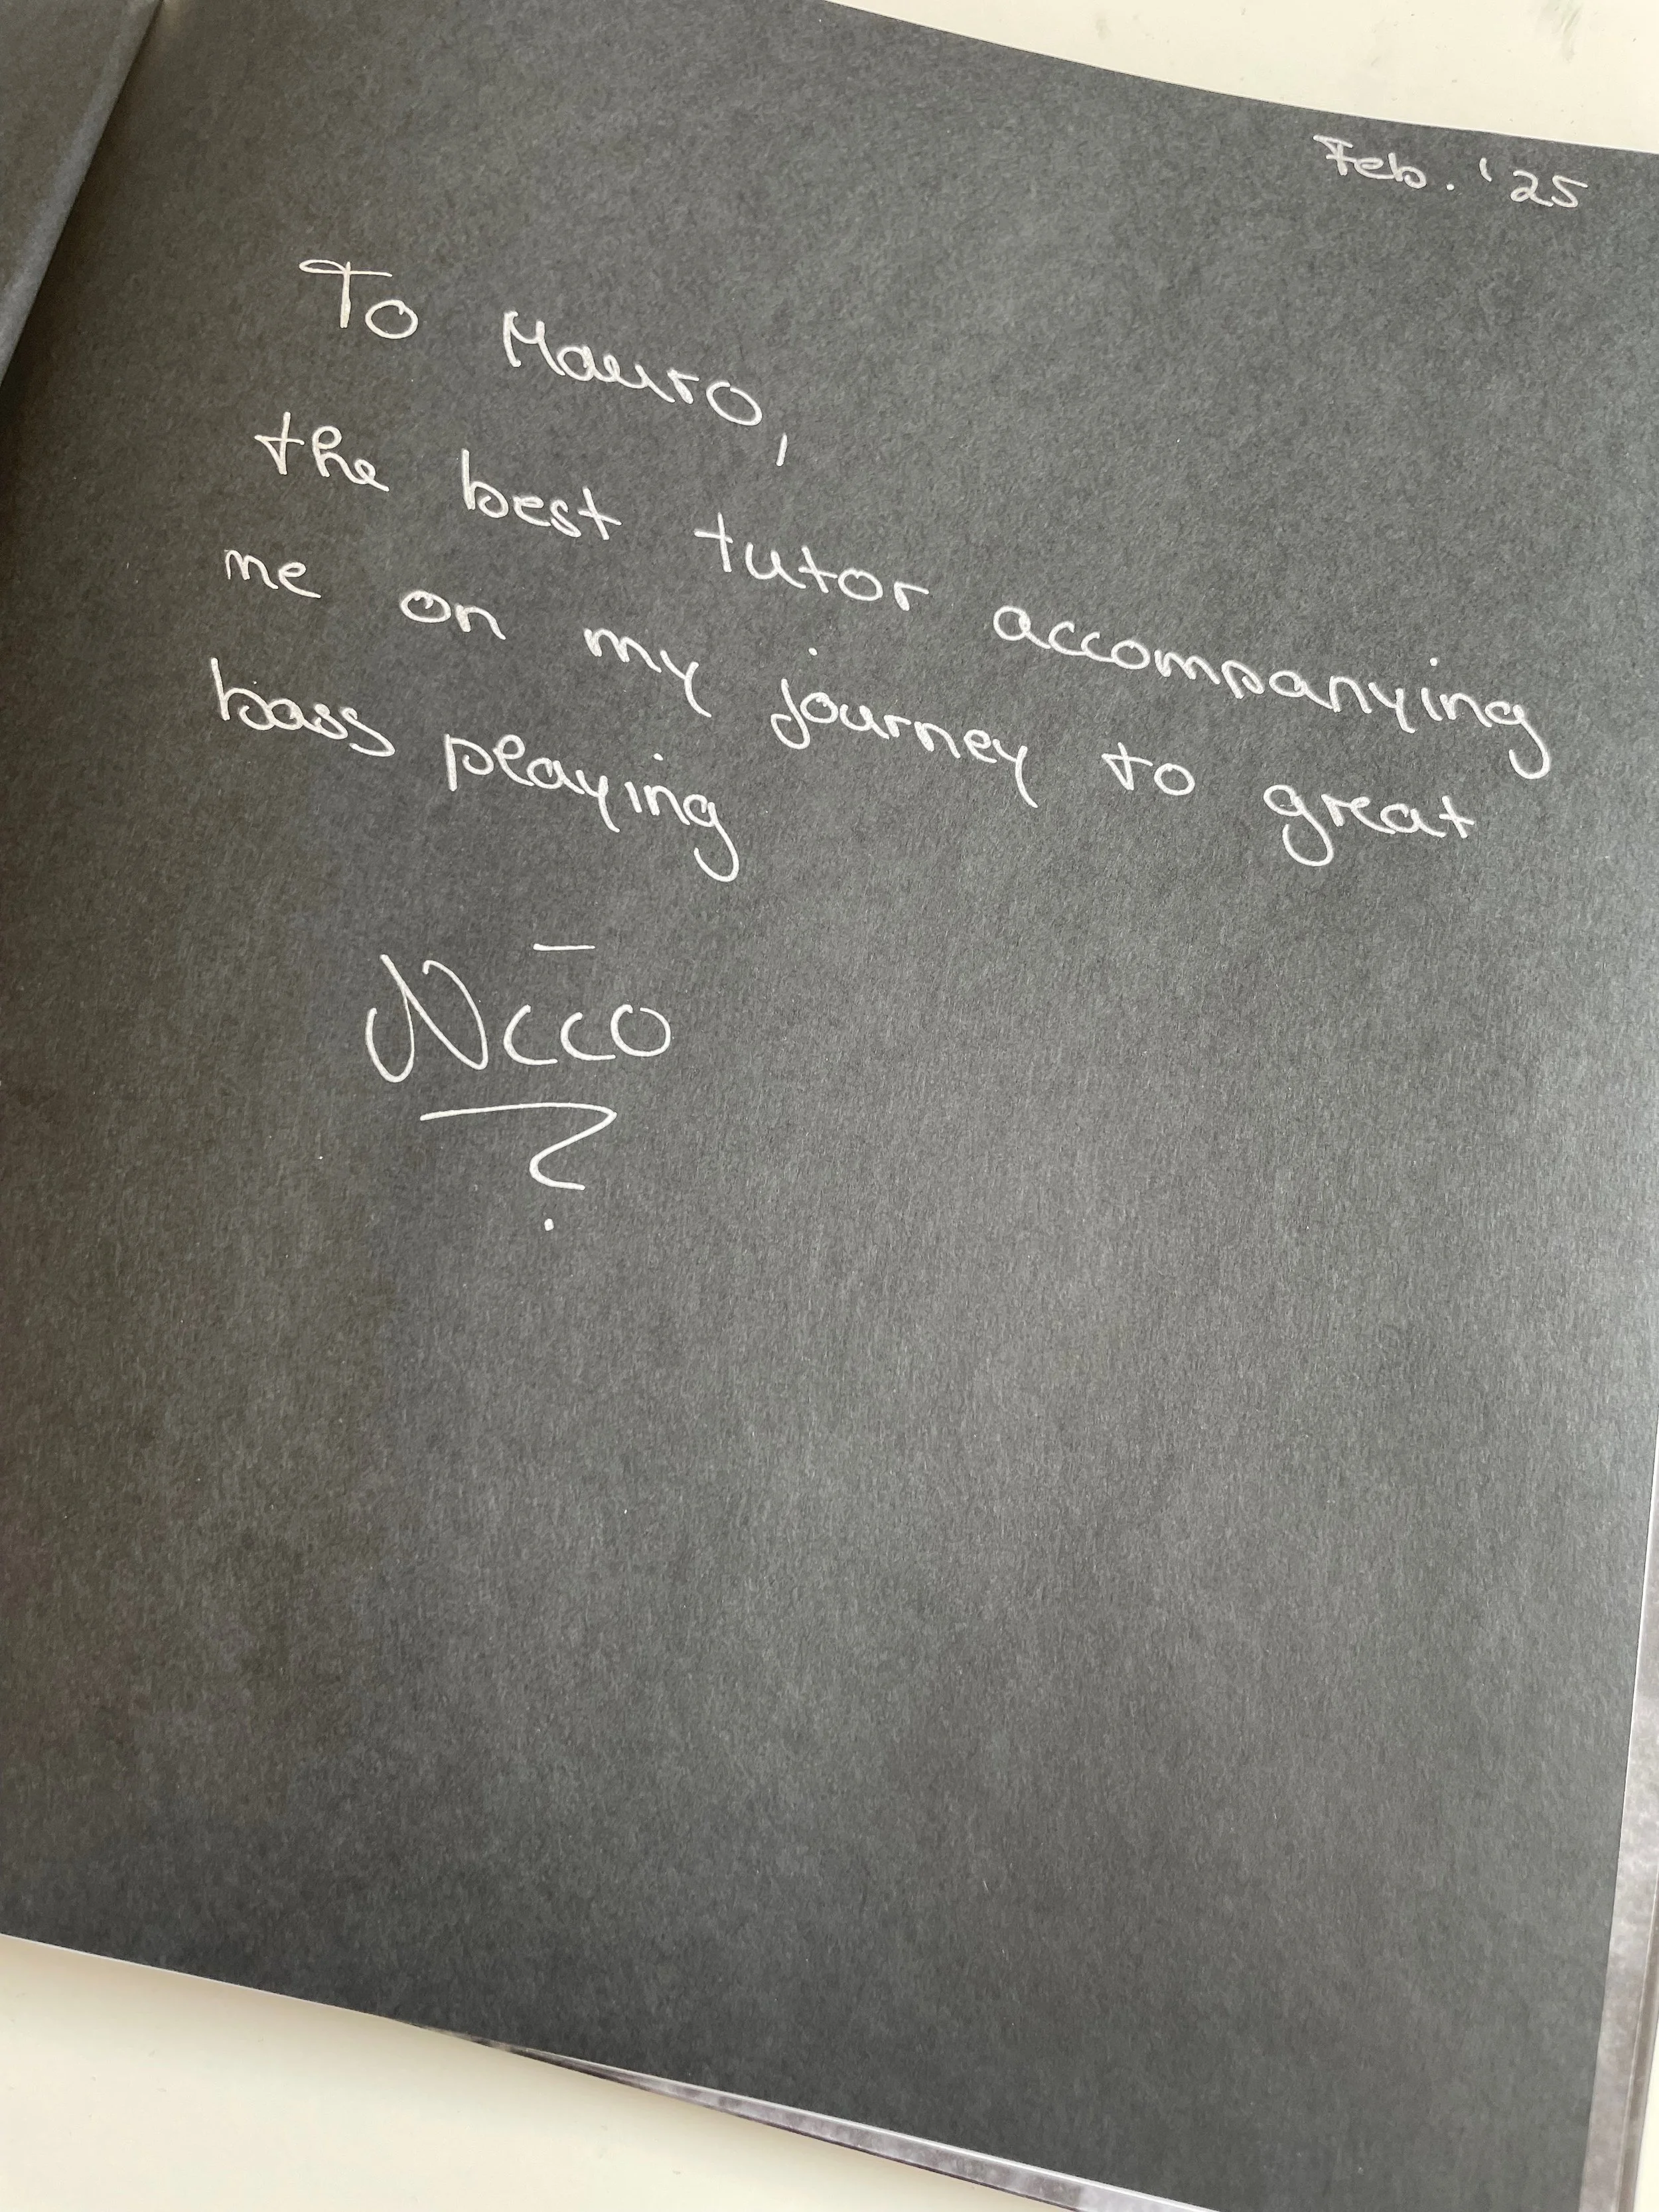 Feb. '25
To Mauro,
the best tutor accompanying
me on my journey to great
bass playing
Nico